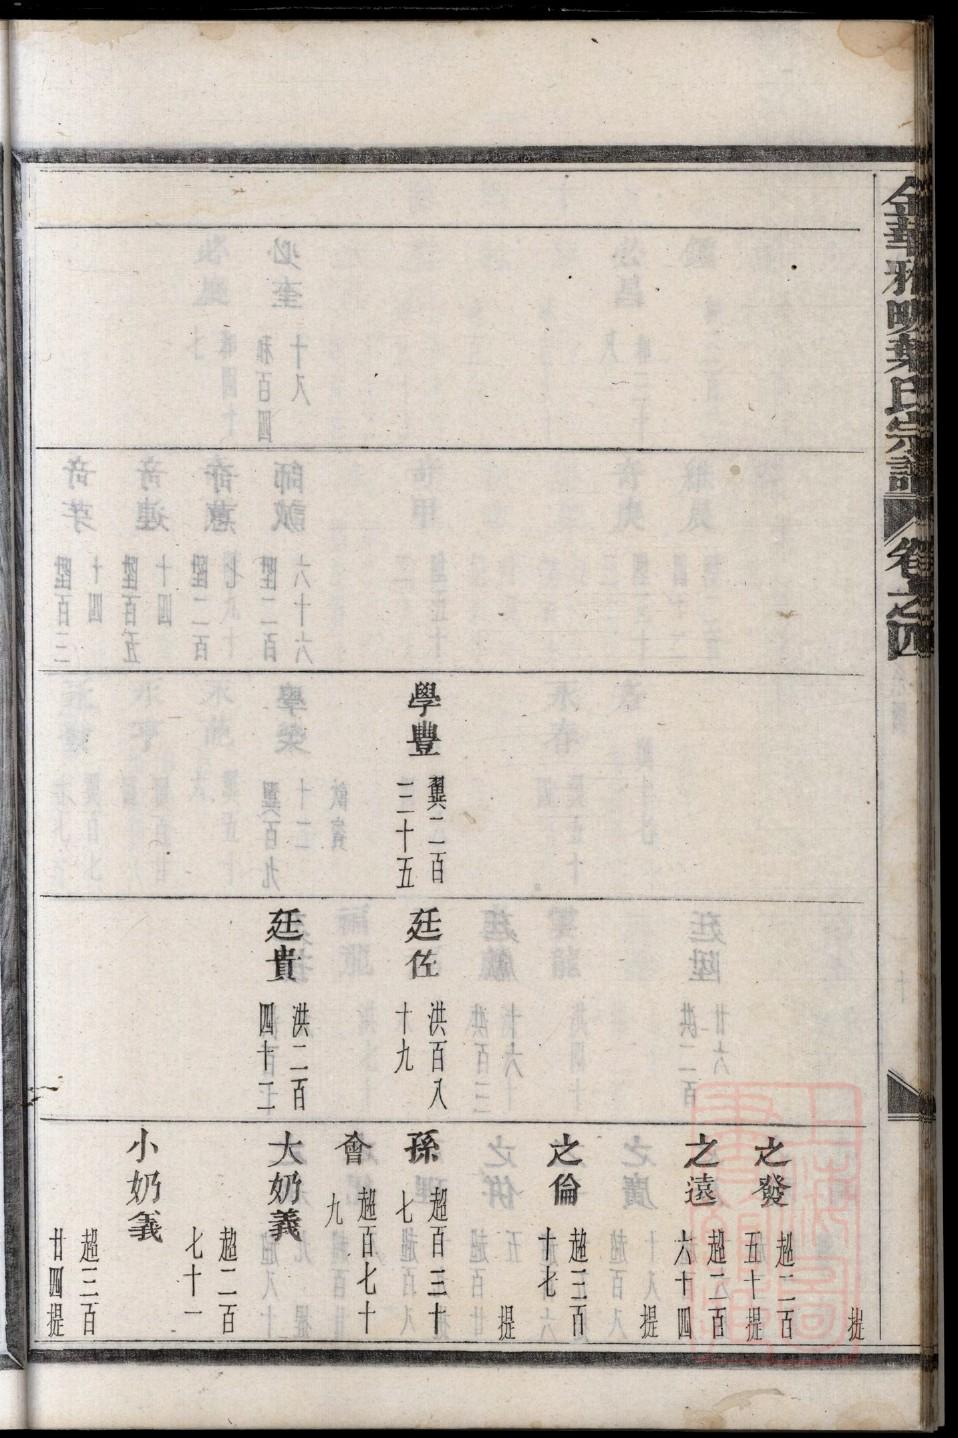 金華雅畈葉氏宗譜
卷之四
學豐
翼二百
三十五
廷佐
洪百八
十九
廷貴
洪二百
四十二
提
之發
超二百
五十提
之遠
超二百
六十四
提
之倫
超三百
十七
提
孫
超百三十
七
會
超百七十
九
大奶義
超二百
七十一
小奶義
超三百
廿四提